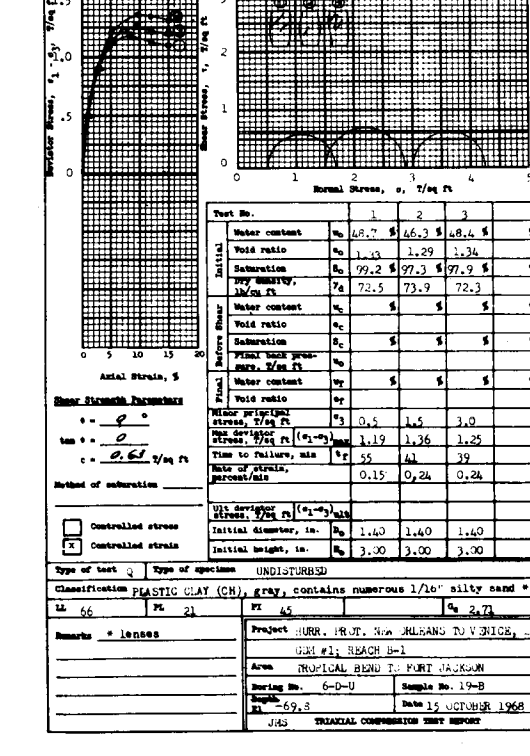 1.0
.5
0
0 5 10 15 20
Axial Strain, %
Deviator Stress, σ1 - σ3, T/sq ft
Shear Stress, τ, T/sq ft
3
2
1
0
0 1 2 3 4 5
Normal Stress, σ, T/sq ft
Shear Strength Parameters
φ = 0 °
tan φ = 0
c = 0.63 T/sq ft
Method of saturation
Controlled stress
X Controlled strain
Test No. 1 2 3
Initial
Water content w0 48.7 % 46.3 % 48.4 % %
Void ratio e0 1.33 1.29 1.34
Saturation S0 99.2 % 97.3 % 97.9 % %
Dry density, lb/cu ft γd 72.5 73.9 72.3
Before Shear
Water content wc % % % %
Void ratio ec
Saturation Sc % % % %
Final back pressure, T/sq ft u0
Final
Water content wf % % % %
Void ratio ef
Minor principal stress, T/sq ft σ3 0.5 1.5 3.0
Max deviator stress, T/sq ft (σ1-σ3)max 1.19 1.36 1.25
Time to failure, min tf 55 41 39
Rate of strain, percent/min 0.15 0.24 0.24
Ult deviator stress, T/sq ft (σ1-σ3)ult
Initial diameter, in. D0 1.40 1.40 1.40
Initial height, in. H0 3.00 3.00 3.00
Type of test Q Type of specimen UNDISTURBED
Classification PLASTIC CLAY (CH), gray, contains numerous 1/16" silty sand *
LL 66 PL 21 PI 45 Gs 2.71
Remarks * lenses
Project HURR. PROT. NEW ORLEANS TO VENICE,
GDM #1; REACH B-1
Area TROPICAL BEND TO FORT JACKSON
Boring No. 6-D-U Sample No. 19-B
Depth El -69.8 Date 15 OCTOBER 1968
JHS TRIAXIAL COMPRESSION TEST REPORT